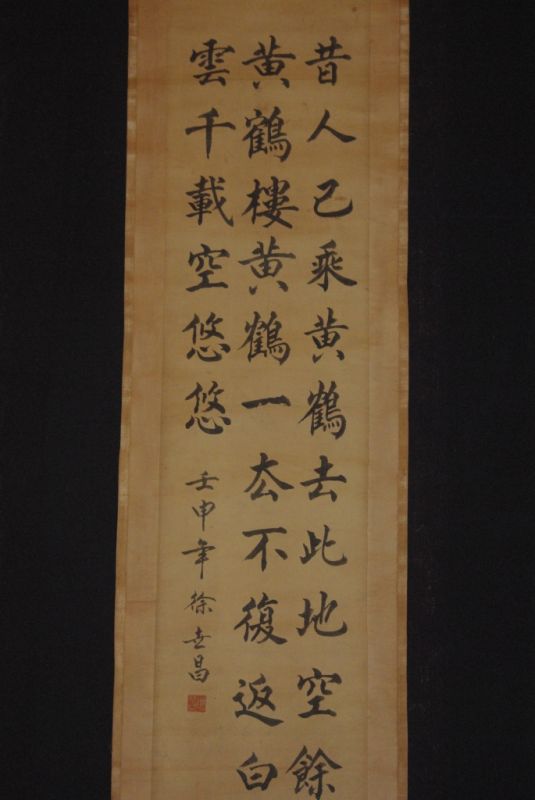 昔人已乘黄鶴去此地空餘
黄鶴樓黄鶴一去不復返白
雲千載空悠悠
壬申年徐世昌